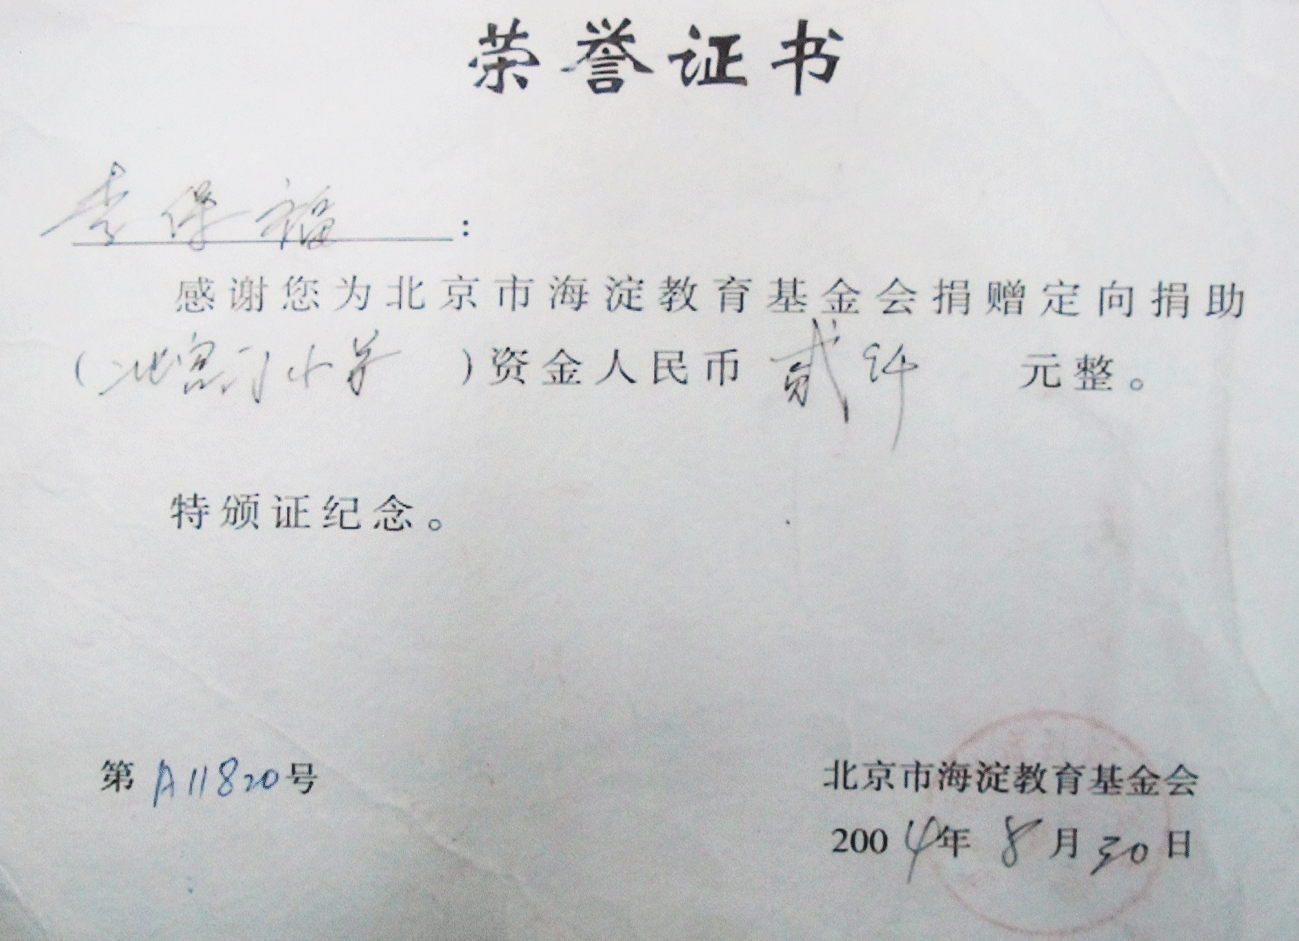 荣誉证书
李保福:
感谢您为北京市海淀教育基金会捐赠定向捐助
(北宫门小学)资金人民币贰仟元整。
特颁证纪念。
第A11820号
北京市海淀教育基金会
2004年8月30日